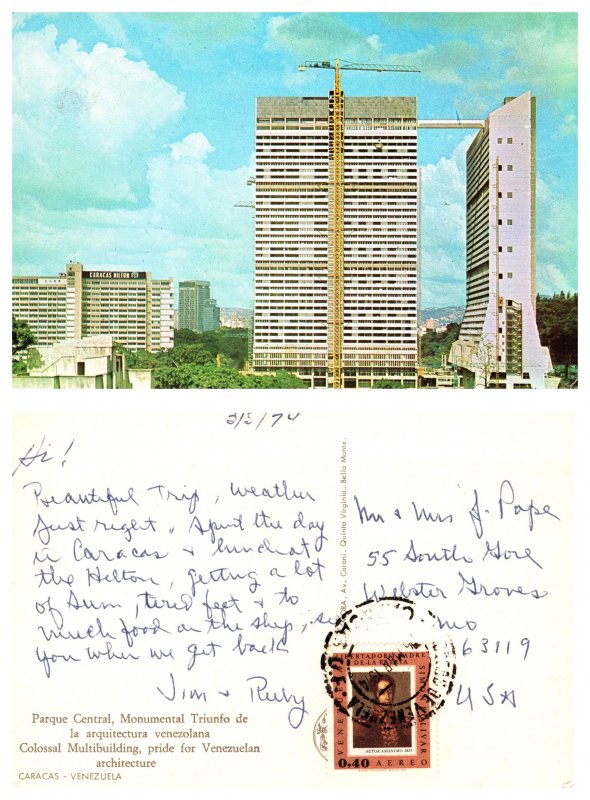 CARACAS HILTON
3/3/74
Hi!
Beautiful Trip, weather
just right. Spent the day
in Caracas & lunch at
the Helton, getting a lot
of sun, tired feet & to
much food on the ship, see
you when we get back
Jim & Ruby
Mr & Mrs J. Pape
55 South Gore
Webster Groves
Mo
63119
USA
Av. Caroní, Quinta Virginia, Bello Monte.
LIBERTADOR Y PADRE
DE LA PATRIA
SIMON BOLIVAR
VENEZUELA
AUTOR ANONIMO 1825
0.40 AEREO
Parque Central, Monumental Triunfo de
la arquitectura venezolana
Colossal Multibuilding, pride for Venezuelan
architecture
CARACAS - VENEZUELA